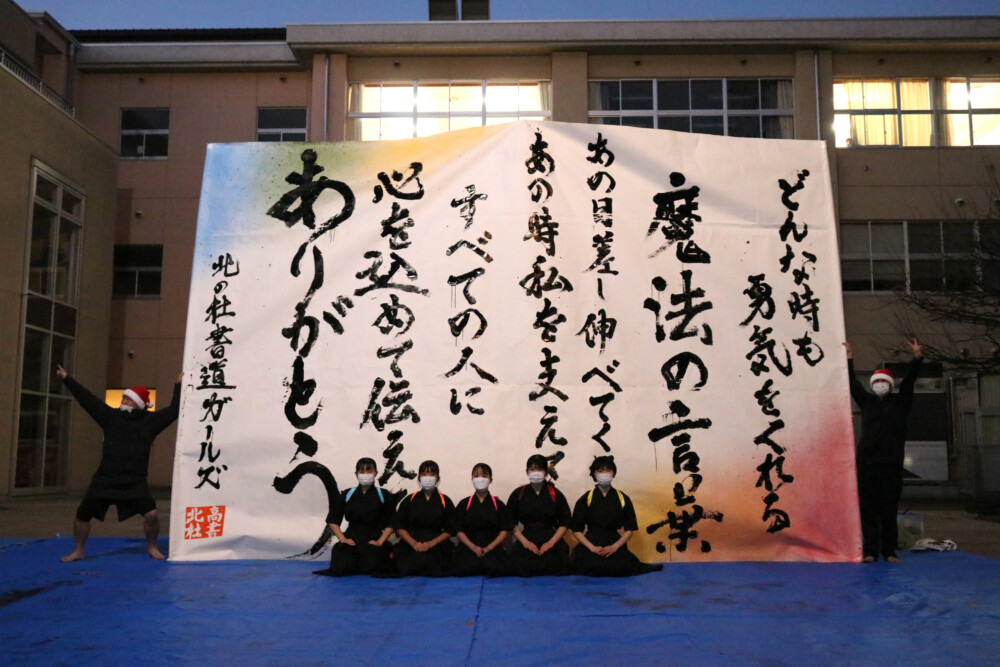 どんな時も
勇気をくれる
魔法の言葉
あの日差し伸べてく
あの時私を支え
すべての人に
心を込めて伝え
ありがとう
北の杜書道ガールズ
高書
北杜